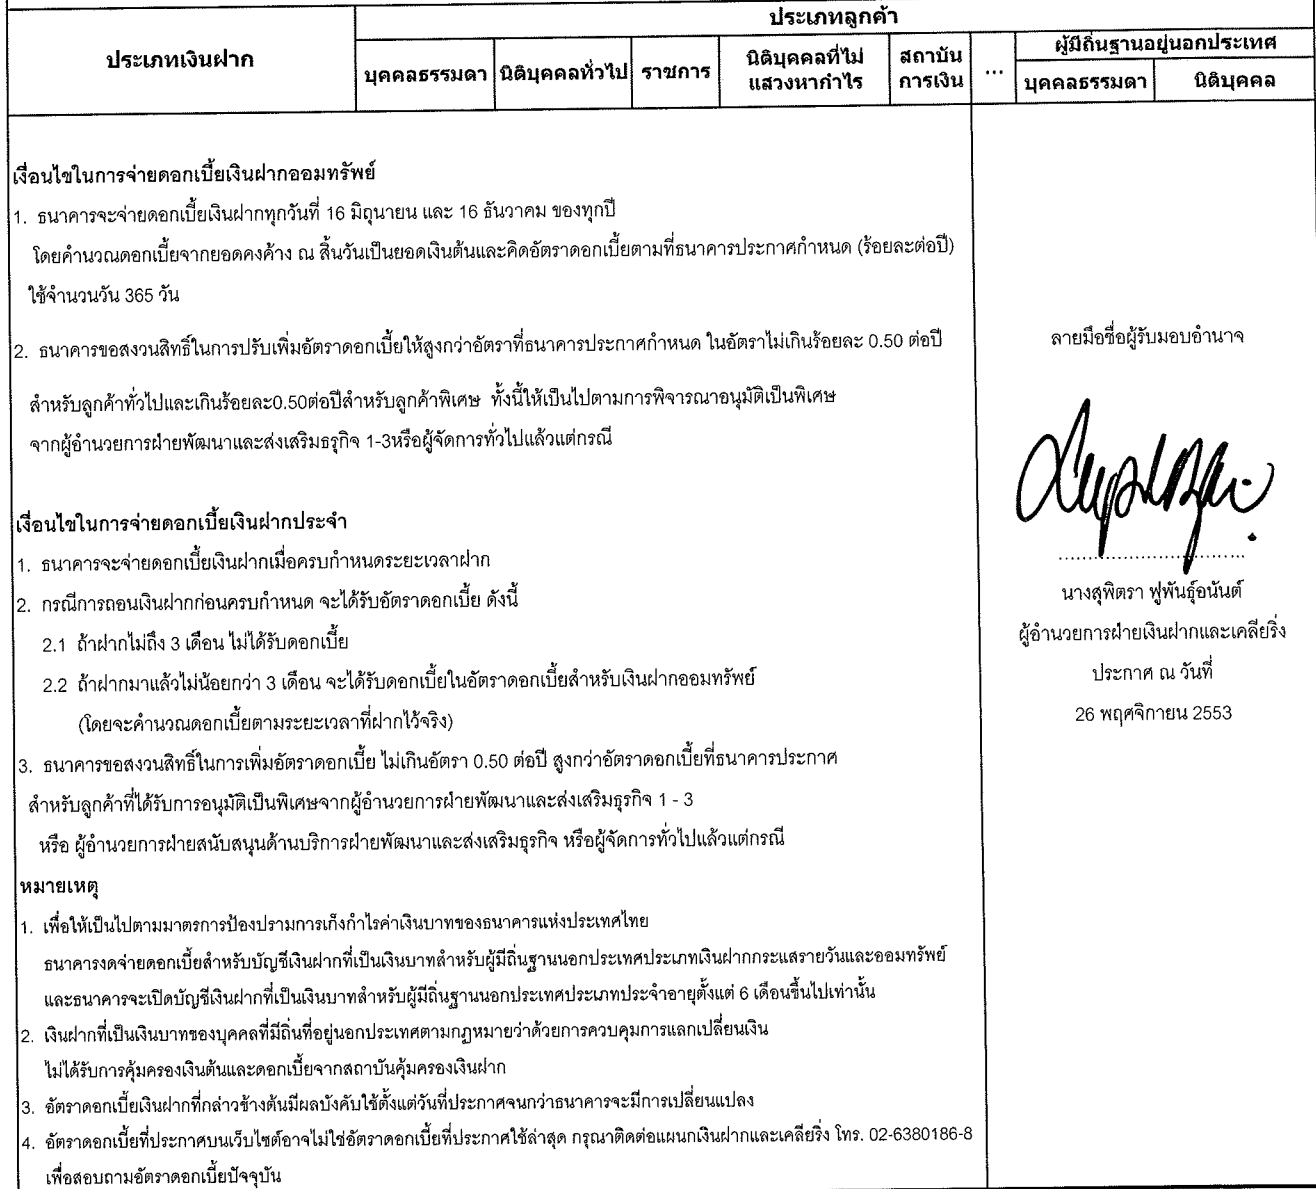 ประเภทลูกค้า
ประเภทเงินฝาก
บุคคลธรรมดา นิติบุคคลทั่วไป ราชการ นิติบุคคลที่ไม่ สถาบัน ... ผู้มีถิ่นฐานอยู่นอกประเทศ
แสวงหากำไร การเงิน บุคคลธรรมดา นิติบุคคล
เงื่อนไขในการจ่ายดอกเบี้ยเงินฝากออมทรัพย์
1. ธนาคารจะจ่ายดอกเบี้ยเงินฝากทุกวันที่ 16 มิถุนายน และ 16 ธันวาคม ของทุกปี
โดยคำนวณดอกเบี้ยจากยอดคงค้าง ณ สิ้นวันเป็นยอดเงินต้นและคิดอัตราดอกเบี้ยตามที่ธนาคารประกาศกำหนด (ร้อยละต่อปี)
ใช้จำนวนวัน 365 วัน
2. ธนาคารขอสงวนสิทธิ์ในการปรับเพิ่มอัตราดอกเบี้ยให้สูงกว่าอัตราที่ธนาคารประกาศกำหนด ในอัตราไม่เกินร้อยละ 0.50 ต่อปี
สำหรับลูกค้าทั่วไปและเกินร้อยละ0.50ต่อปีสำหรับลูกค้าพิเศษ ทั้งนี้ให้เป็นไปตามการพิจารณาอนุมัติเป็นพิเศษ
จากผู้อำนวยการฝ่ายพัฒนาและส่งเสริมธุรกิจ 1-3หรือผู้จัดการทั่วไปแล้วแต่กรณี
เงื่อนไขในการจ่ายดอกเบี้ยเงินฝากประจำ
1. ธนาคารจะจ่ายดอกเบี้ยเงินฝากเมื่อครบกำหนดระยะเวลาฝาก
2. กรณีการถอนเงินฝากก่อนครบกำหนด จะได้รับอัตราดอกเบี้ย ดังนี้
2.1 ถ้าฝากไม่ถึง 3 เดือน ไม่ได้รับดอกเบี้ย
2.2 ถ้าฝากมาแล้วไม่น้อยกว่า 3 เดือน จะได้รับดอกเบี้ยในอัตราดอกเบี้ยสำหรับเงินฝากออมทรัพย์
(โดยจะคำนวณดอกเบี้ยตามระยะเวลาที่ฝากไว้จริง)
3. ธนาคารขอสงวนสิทธิ์ในการเพิ่มอัตราดอกเบี้ย ไม่เกินอัตรา 0.50 ต่อปี สูงกว่าอัตราดอกเบี้ยที่ธนาคารประกาศ
สำหรับลูกค้าที่ได้รับการอนุมัติเป็นพิเศษจากผู้อำนวยการฝ่ายพัฒนาและส่งเสริมธุรกิจ 1 - 3
หรือ ผู้อำนวยการฝ่ายสนับสนุนด้านบริการฝ่ายพัฒนาและส่งเสริมธุรกิจ หรือผู้จัดการทั่วไปแล้วแต่กรณี
หมายเหตุ
1. เพื่อให้เป็นไปตามมาตรการป้องปรามการเก็งกำไรค่าเงินบาทของธนาคารแห่งประเทศไทย
ธนาคารงดจ่ายดอกเบี้ยสำหรับบัญชีเงินฝากที่เป็นเงินบาทสำหรับผู้มีถิ่นฐานนอกประเทศประเภทเงินฝากกระแสรายวันและออมทรัพย์
และธนาคารจะเปิดบัญชีเงินฝากที่เป็นเงินบาทสำหรับผู้มีถิ่นฐานนอกประเทศประเภทประจำอายุตั้งแต่ 6 เดือนขึ้นไปเท่านั้น
2. เงินฝากที่เป็นเงินบาทของบุคคลที่มีถิ่นที่อยู่นอกประเทศตามกฎหมายว่าด้วยการควบคุมการแลกเปลี่ยนเงิน
ไม่ได้รับการคุ้มครองเงินต้นและดอกเบี้ยจากสถาบันคุ้มครองเงินฝาก
3. อัตราดอกเบี้ยเงินฝากที่กล่าวข้างต้นมีผลบังคับใช้ตั้งแต่วันที่ประกาศจนกว่าธนาคารจะมีการเปลี่ยนแปลง
4. อัตราดอกเบี้ยที่ประกาศบนเว็บไซต์อาจไม่ใช่อัตราดอกเบี้ยที่ประกาศใช้ล่าสุด กรุณาติดต่อแผนกเงินฝากและเคลียริ่ง โทร. 02-6380186-8
เพื่อสอบถามอัตราดอกเบี้ยปัจจุบัน
ลายมือชื่อผู้รับมอบอำนาจ
นางสุพิตรา ฟูพันธุ์อนันต์
ผู้อำนวยการฝ่ายเงินฝากและเคลียริ่ง
ประกาศ ณ วันที่
26 พฤศจิกายน 2553